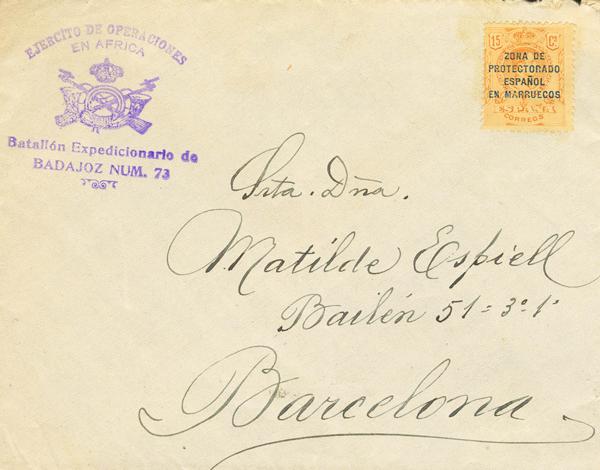 EJERCITO DE OPERACIONES
EN AFRICA
Batallón Expedicionario de
BADAJOZ NUM. 73
15 Cs.
ZONA DE
PROTECTORADO
ESPAÑOL
EN MARRUECOS
ESPAÑA
CORREOS
Srta. Dña.
Matilde Espiell
Bailén 51=3º.1ª
Barcelona